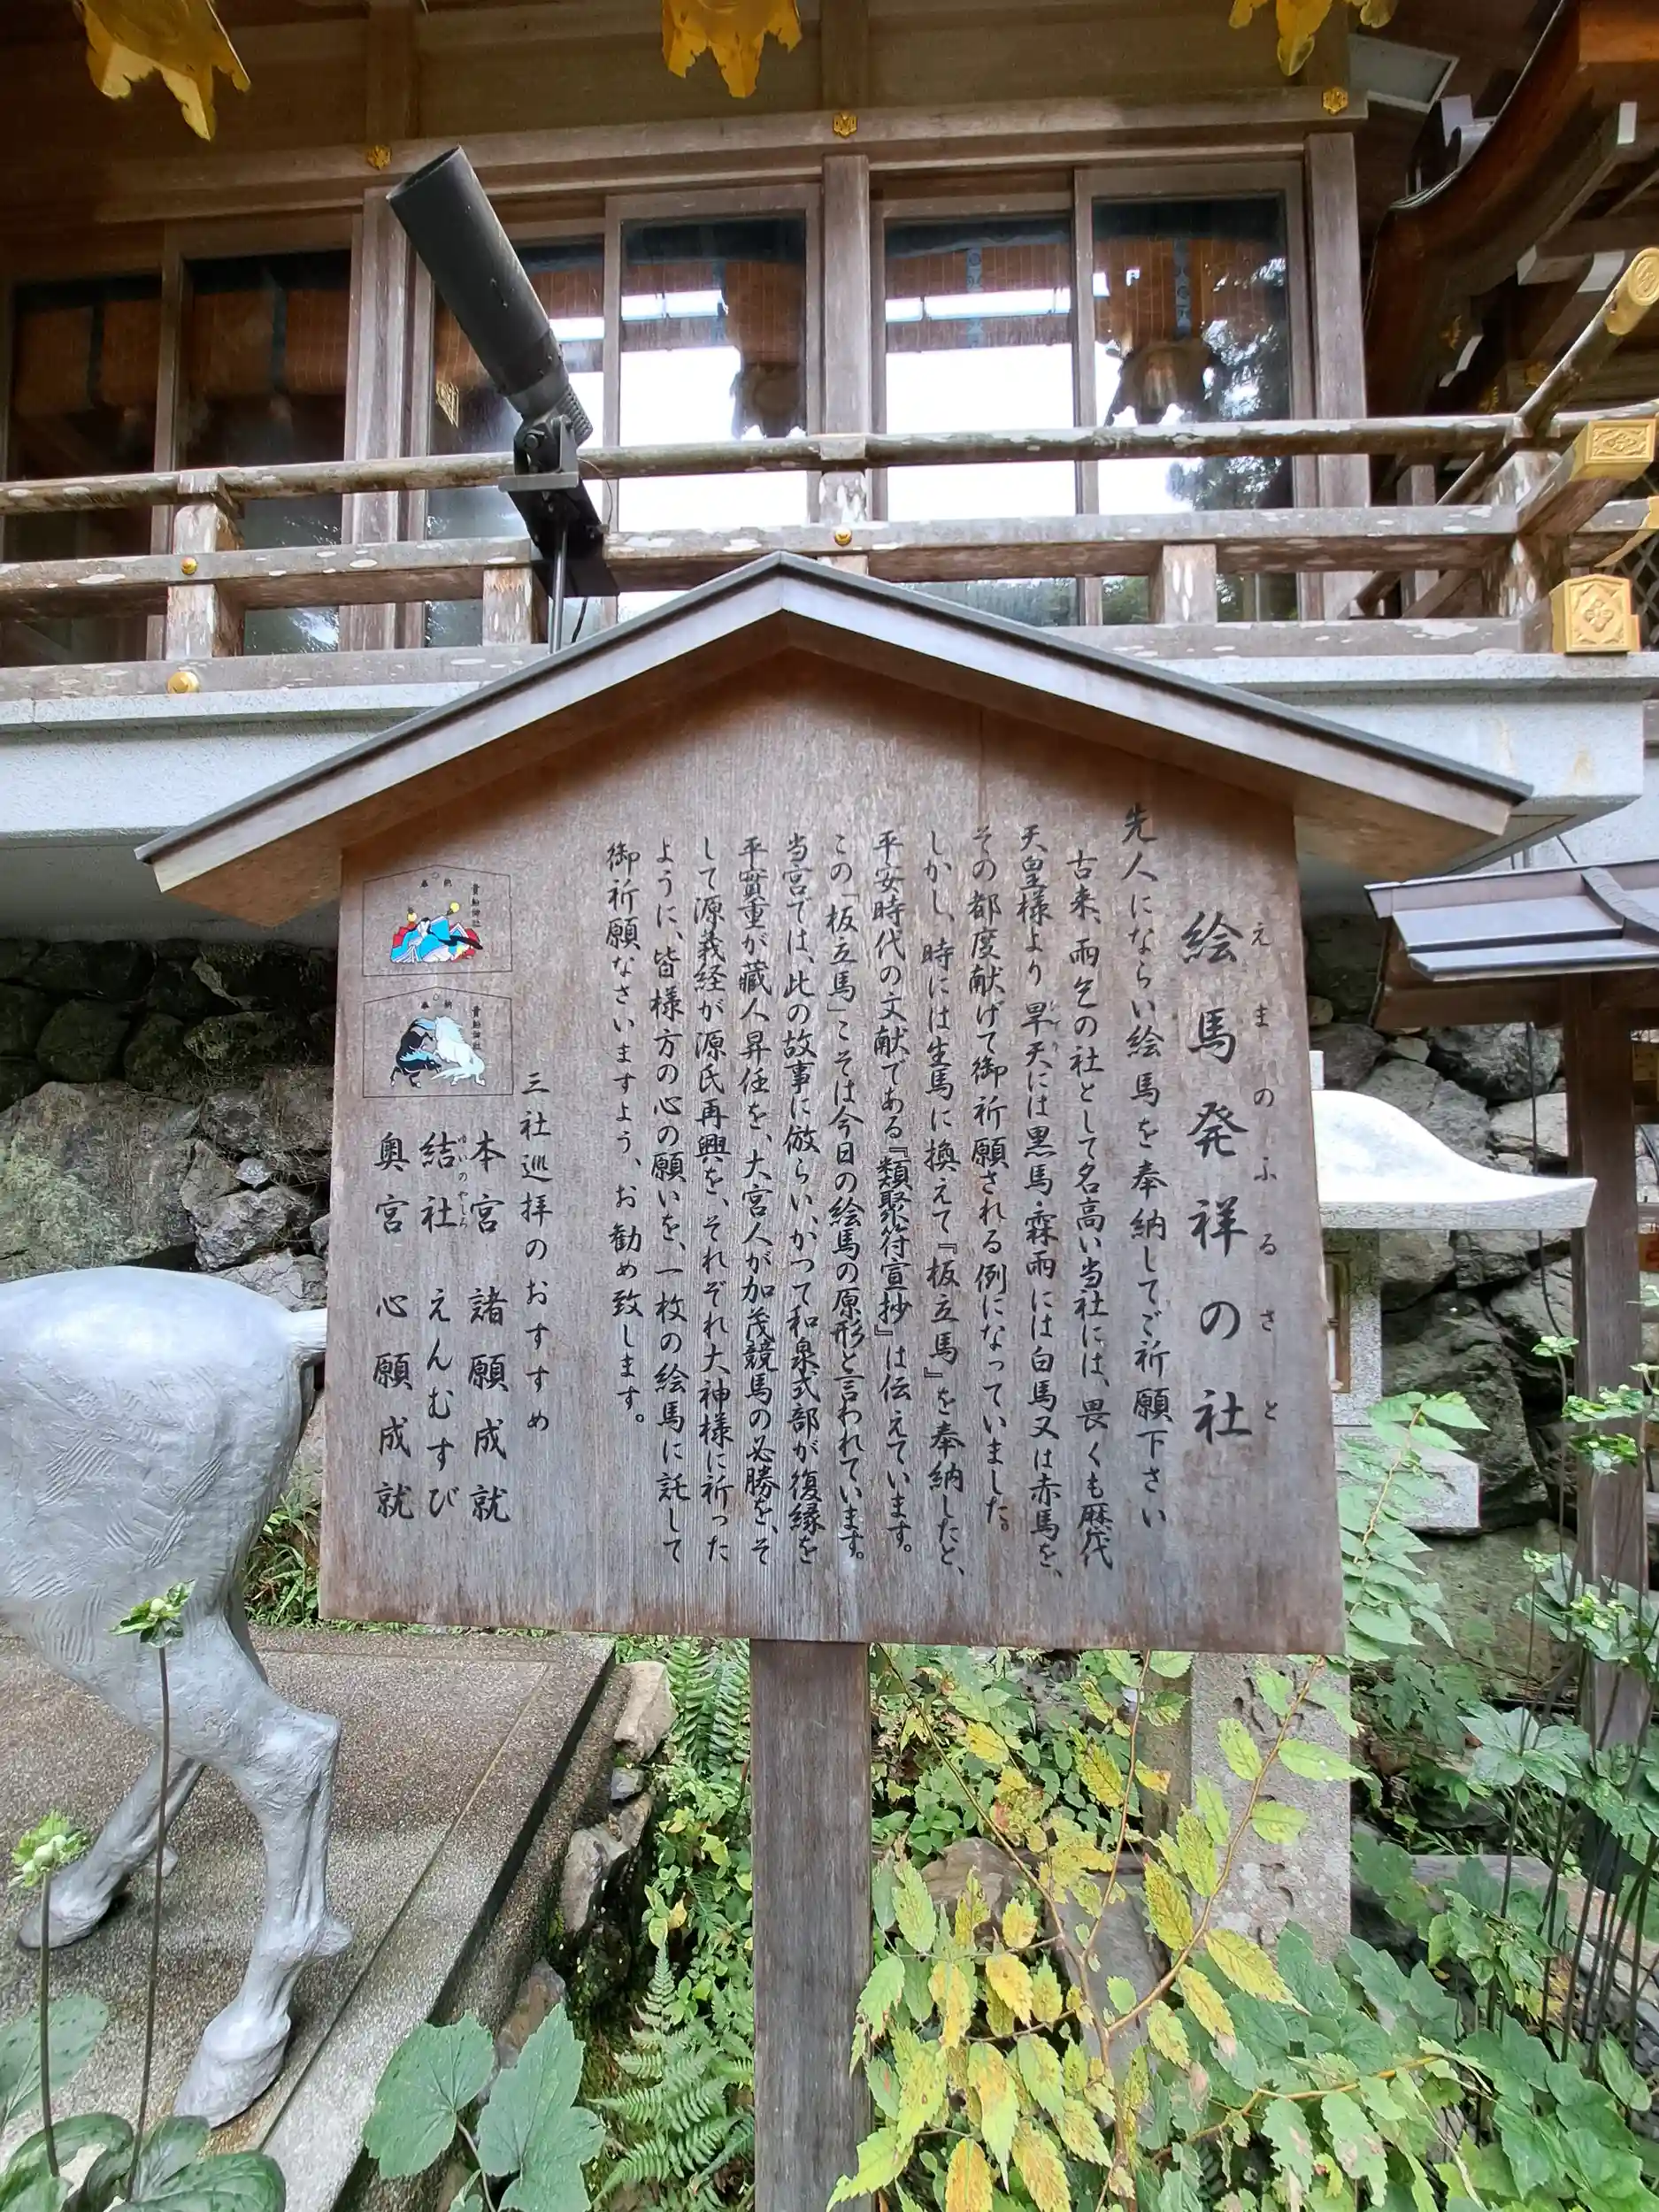 えまのふるさと
絵馬発祥の社
先人にならい絵馬を奉納してご祈願下さい
古来、雨乞の社として名高い当社には、畏くも歴代
天皇様より旱天には黒馬・霖雨には白馬又は赤馬を、
その都度献げて御祈願される例になっていました。
しかし、時には生馬に換えて『板立馬』を奉納したと、
平安時代の文献である『類聚符宣抄』は伝えています。
この「板立馬」こそは今日の絵馬の原形と言われています。
当宮では、此の故事に倣らい、かつて和泉式部が復縁を
平實重が蔵人昇任を、大宮人が加茂競馬の必勝を、そ
して源義経が源氏再興を、それぞれ大神様に祈った
ように、皆様方の心の願いを、一枚の絵馬に託して
御祈願なさいますよう、お勧め致します。
三社巡拝のおすすめ
本宮 諸願成就
結社 えんむすび
ゆいのやしろ
奥宮 心願成就
奉納
貴船神社
奉納
貴船神社